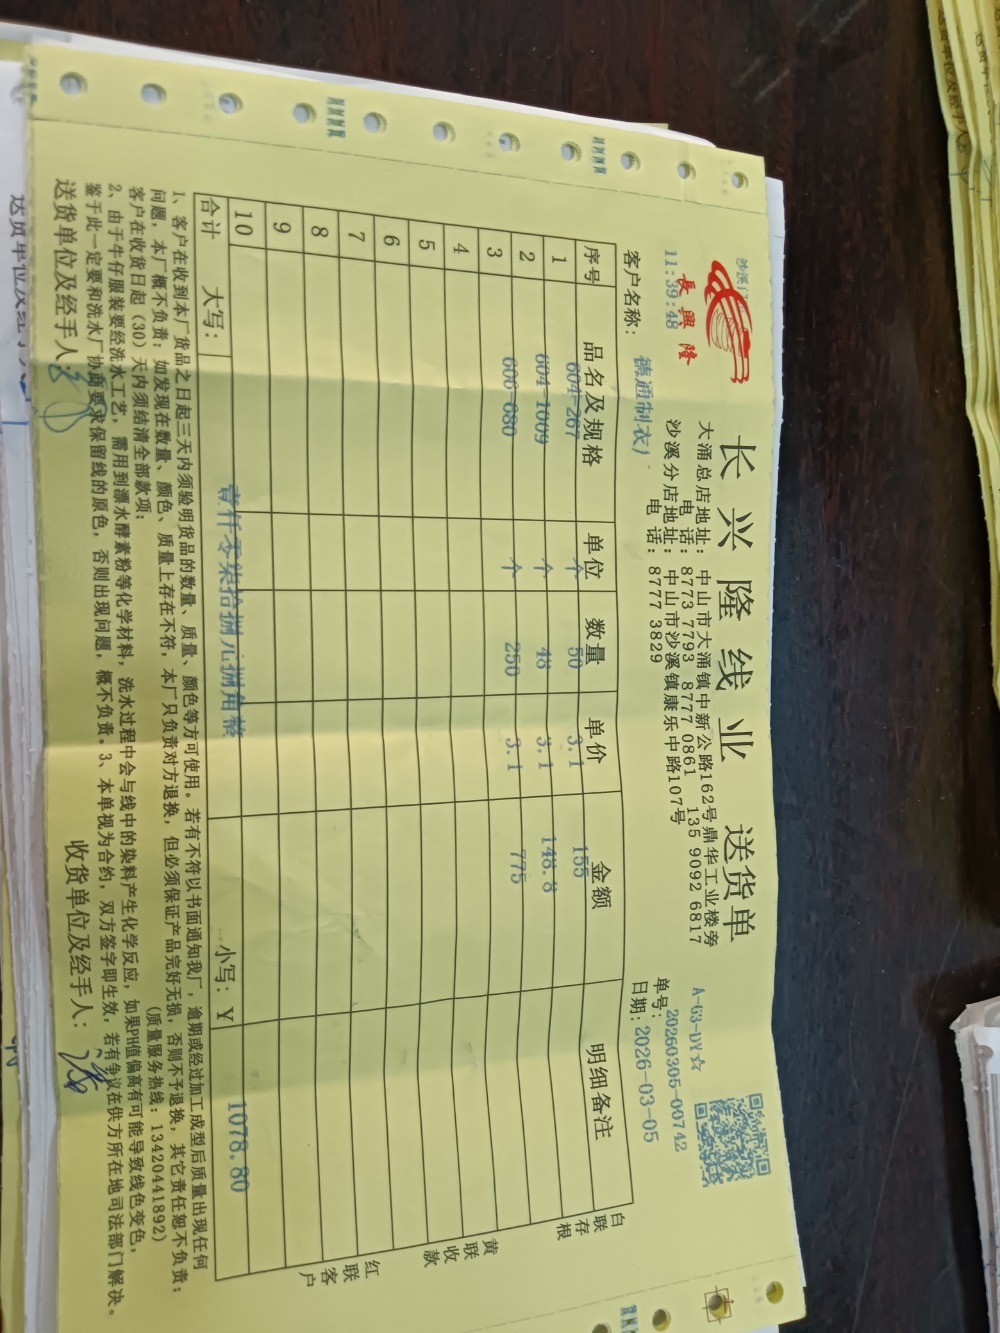 沙溪门
11:39:48
長興隆
长兴隆线业 送货单
大涌总店地址：中山市大涌镇中新公路162号鼎华工业楼旁
电话：8773 7793 8777 0861 135 9092 6817
沙溪分店地址：中山市沙溪镇康乐中路107号
电话：8777 3829
A-G3-DY☆
单号：20260305-00742
客户名称：德通制衣）
日期：2026-03-05
序号 品名及规格 单位 数量 单价 金额 明细备注
1 604-267 个 50 3.1 155
2 604-1009 个 48 3.1 148.8
3 606-680 个 250 3.1 775
4
5
6
7
8
9
10
合计 大写：壹仟零柒拾捌元捌角整 小写：￥ 1078.80
白联存根
黄联收款
红联客户
1、客户在收到本厂货品之日起三天内须验明货品的数量、质量、颜色等方可使用。若有不符以书面通知我厂，逾期或经过加工成型后质量出现任何
问题，本厂概不负责；如发现在数量、颜色、质量上存在不符，本厂只负责对方退换，但必须保证产品完好无损，否则不予退换，其它责任恕不负责；
客户在收货日起（30）天内须结清全部款项；
（质量服务热线：13420441892）
2、由于牛仔服装要经洗水工艺，需用到漂水酵素粉等化学材料，洗水过程中会与线中的染料产生化学反应，如果PH值偏高有可能导致线色变色，
鉴于此一定要和洗水厂协商要求保留线的原色，否则出现问题，概不负责。3、本单视为合约，双方签字即生效，若有争议在供方所在地司法部门解决。
送货单位及经手人：
收货单位及经手人：